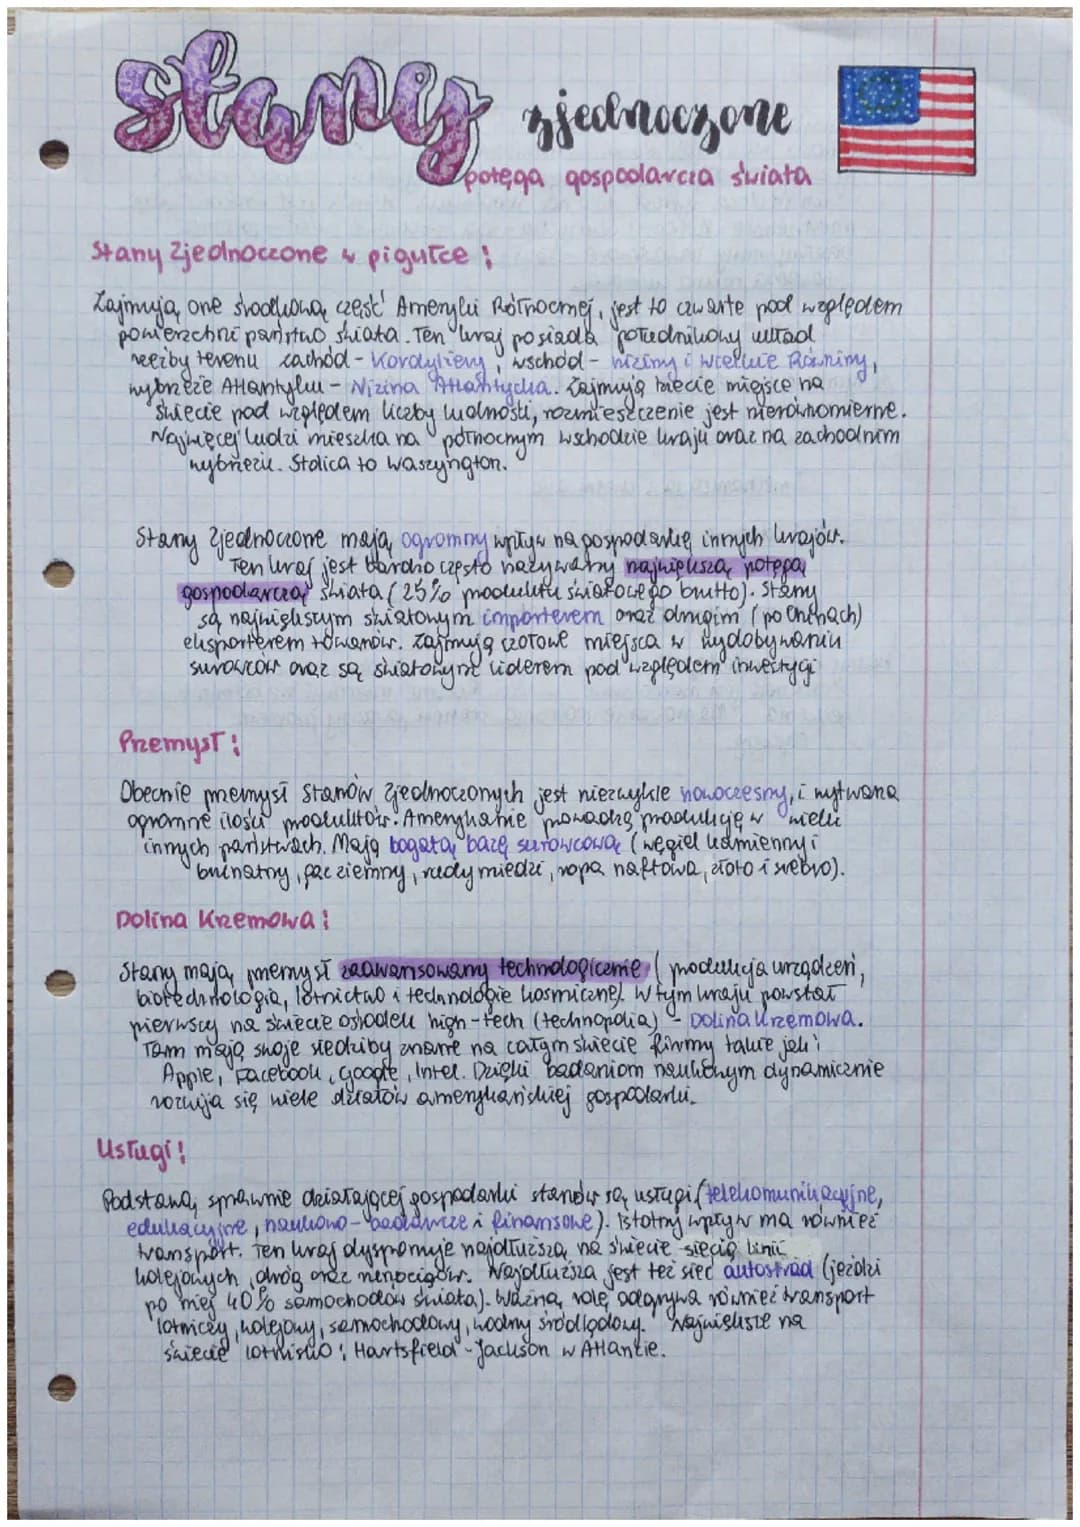 Stany zjednoczone
potęga gospodarcza świata
Stany Zjednoczone w pigułce:
Zajmują one środkową część Ameryki Północnej, jest to czwarte pod względem
powierzchni państwo świata. Ten kraj posiada południkowy układ
rzeźby terenu zachód - Kordyliery, wschód - niziny i Wielkie Równiny,
wybrzeże Atlantyku - Nizina Atlantycka. Zajmują trzecie miejsce na
świecie pod względem liczby ludności, rozmieszczenie jest nierównomierne.
Najwięcej ludzi mieszka na północnym wschodzie kraju oraz na zachodnim
wybrzeżu. Stolica to Waszyngton.
Stany Zjednoczone mają ogromny wpływ na gospodarkę innych krajów.
Ten kraj jest bardzo często nazywany największą potęgą
gospodarczą świata (25% produktu światowego brutto). Stany
są największym światowym importerem oraz drugim (po Chinach)
eksporterem towarów. Zajmują czołowe miejsca w wydobywaniu
surowców oraz są światowym liderem pod względem inwestycji
Przemysł:
Obecnie przemysł Stanów Zjednoczonych jest niezwykle nowoczesny, i wytwarza
ogromne ilości produktów. Amerykanie prowadzą produkcję w wielu
innych państwach. Mają bogatą bazę surowcową (węgiel kamienny i
brunatny, gaz ziemny, rudy miedzi, ropa naftowa, złoto i srebro).
Dolina Krzemowa:
Stany mają przemysł zaawansowany technologicznie (produkcja urządzeń,
biotechnologia, lotnictwo i technologie kosmiczne). W tym kraju powstał
pierwszy na świecie ośrodek high-tech (technopolia) - Dolina Krzemowa.
Tam mają swoje siedziby znane na całym świecie firmy takie jak:
Apple, Facebook, Google, Intel. Dzięki badaniom naukowym dynamicznie
rozwija się wiele działów amerykańskiej gospodarki.
Usługi:
Podstawą sprawnie działającej gospodarki stanów są usługi (telekomunikacyjne,
edukacyjne, naukowo-badawcze i finansowe). Istotny wpływ ma również
transport. Ten kraj dysponuje najdłuższą na świecie siecią linii
kolejowych, dróg oraz rurociągów. Najdłuższa jest też sieć autostrad (jeździ
po niej 40% samochodów świata). Ważną rolę odgrywa również transport
lotniczy, kolejowy, samochodowy, wodny śródlądowy. Największe na
świecie lotnisko: Hartsfield-Jackson w Atlancie.